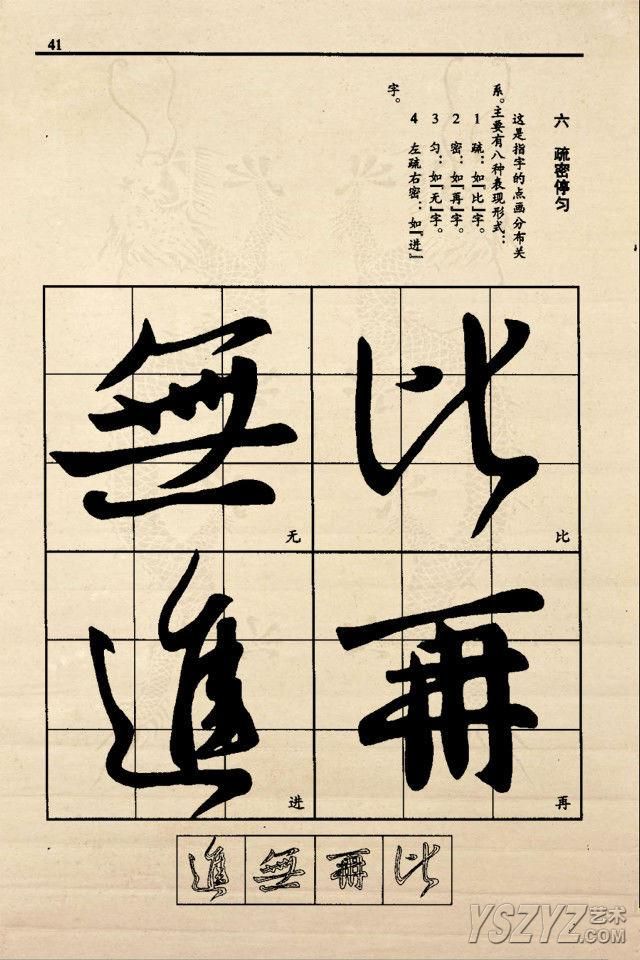 41
六 疏密停匀
这是指字的点画分布关
系。主要有八种表现形式：
1 疏：如『比』字。
2 密：如『再』字。
3 匀：如『无』字。
4 左疏右密：如『进』
字。
比
比
再
再
無
无
進
进
比 再 無 進
YSZYZ艺术
.COM